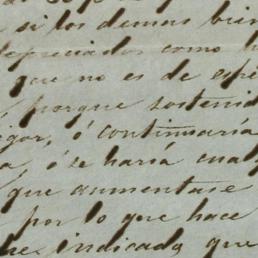 si los demas bien
depreciados como h
que no es de espe
, porque sostenid
igor, ó continuaría
a, ó se haría cua
que aumentase
por lo que hace
indicada que